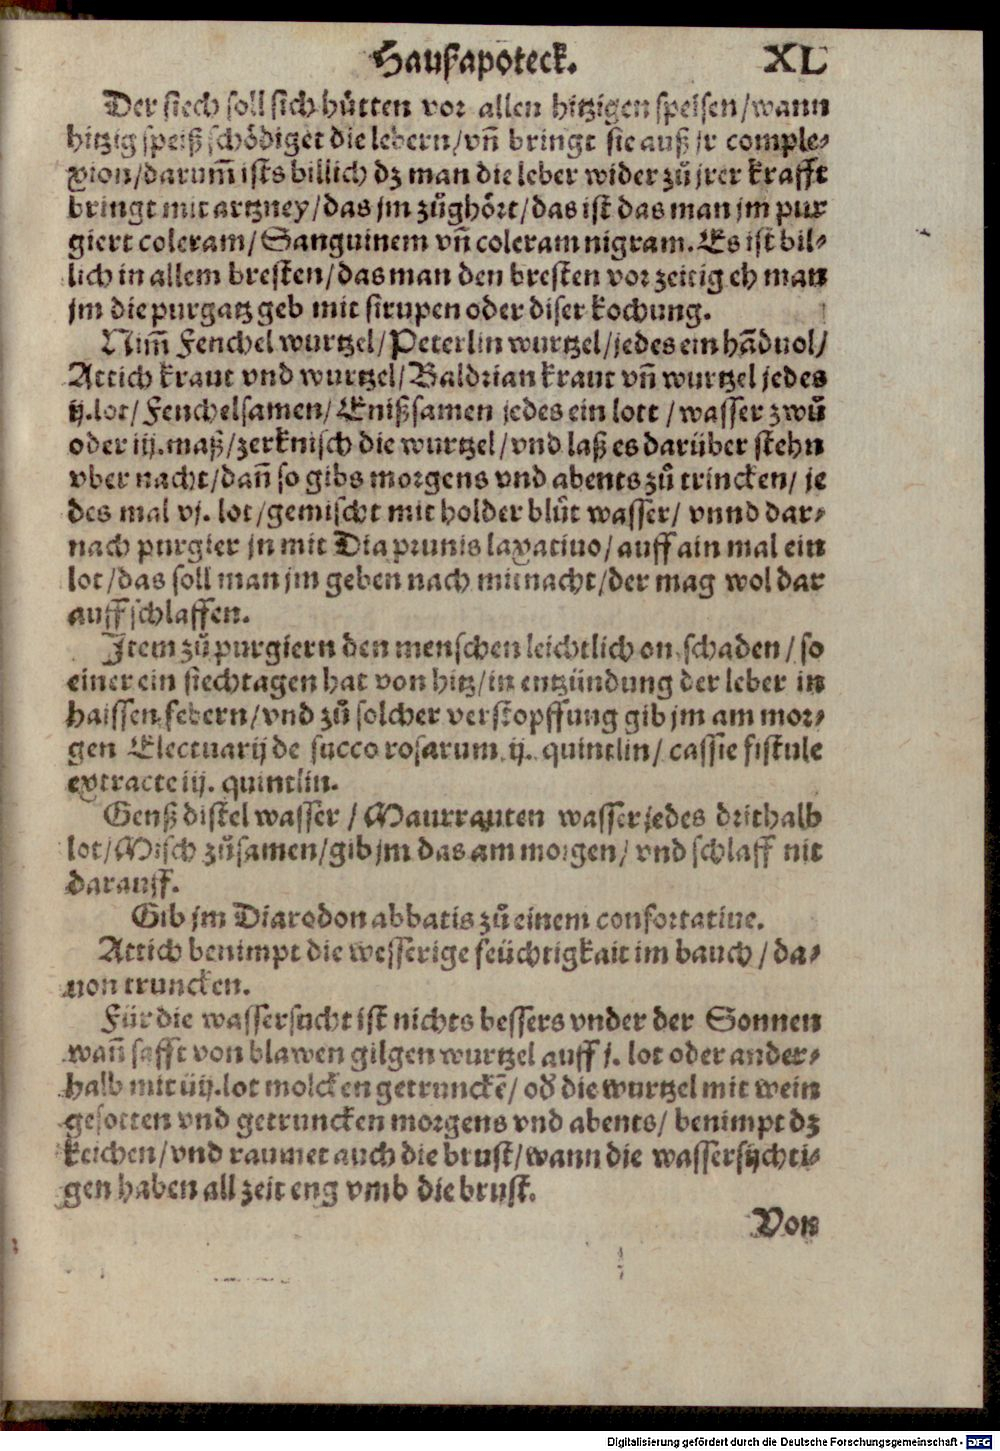 Haußapoteck. XL
Der siech soll sich hůtten vor allen hitzigen speisen/wann
hitzig speiß schödiget die lebern/vñ bringt sie auß jr comple-
xion/darum̃ ists billich dz man die leber wider zů jrer krafft
bringt mit artzney/das jm zůghört/das ist das man jm pur
giert coleram/Sanguinem vñ coleram nigram. Es ist bil-
lich in allem bresten/das man den bresten vor zeitig eh man
jm die purgatz geb mit sirupen oder diser kochung.
Nim̃ Fenchel wurtzel/Peterlin wurtzel/jedes ein hãduol/
Attich kraut vnd wurtzel/Baldrian kraut vñ wurtzel jedes
ij.lot/Fenchelsamen/Enißsamen jedes ein lott/wasser zwů
oder iij.maß/zerknisch die wurtzel/vnd laß es darüber stehn
vber nacht/dañ so gibs morgens vnd abents zů trincken/je
des mal vj. lot/gemischt mit holder blůt wasser/vnnd dar-
nach purgier jn mit Dia prunis laxatiuo/auff ain mal ein
lot/das soll man jm geben nach mitnacht/der mag wol dar
auff schlaffen.
Item zů purgiern den menschen leichtlich on schaden/so
einer ein siechtagen hat von hitz/in entzündung der leber in
haissen febern/vnd zů solcher verstopffung gib jm am mor-
gen Electuarij de succo rosarum ij. quintlin/cassie fistule
extracte iij. quintlin.
Genß distel wasser/Maurrauten wasser jedes drithalb
lot/Misch zůsamen/gib jm das am morgen/vnd schlaff nit
darauff.
Gib jm Diarodon abbatis zů einem confortatiue.
Attich benimpt die wesserige feüchtigkait im bauch/da-
uon truncken.
Für die wassersucht ist nichts bessers vnder der Sonnen
wañ safft von blawen gilgen wurtzel auff j. lot oder ander-
halb mit iiij.lot molcken getrunckẽ/od̕ die wurtzel mit wein
gesotten vnd getruncken morgens vnd abents/benimpt dz
keichen/vnd raumet auch die brust/wann die wassersychti-
gen haben all zeit eng vmb die brust.
Von
Digitalisierung gefördert durch die Deutsche Forschungsgemeinschaft - DFG